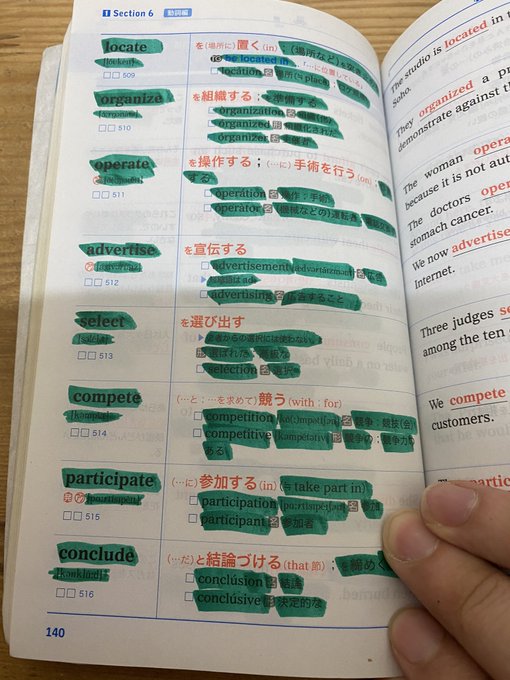 1 Section 6 動詞編
locate
を(場所に)置く(in);(場所など)を
TO be located in 「…に位置している」
location 名 場所(≒place)
509
organize
を組織する;を準備する
organization 名 組織(化)
organized 形 組織化された
organizer 名 主催者
510
operate
を操作する;(…に)手術を行う(on);
する
operation 名 操作;手術
operator 名 (機械などの)運転者
511
advertise
を宣伝する
advertisement 名
ad
advertising 名 広告すること
512
select
を選び出す
2者からの選択には使わない。
形 選ばれた;高級な
selection 名 選択
513
compete
(…と;…を求めて)競う(with;for)
competition 名 競争;競技(会)
competitive 形 競争の;競争力の
ある
514
participate
(…に)参加する(in)(≒ take part in)
participation 名 参加
participant 名 参加者
515
conclude
(…だ)と結論づける(that 節);を締めく
conclúsion 名 結論
conclúsive 形 決定的な
516
140
The studio is located in t
Soho.
They organized a p
demonstrate against th
The woman opera
because it is not aut
The doctors oper
stomach cancer.
We now advertise
Internet.
Three judges se
among the ten
We compete
customers.